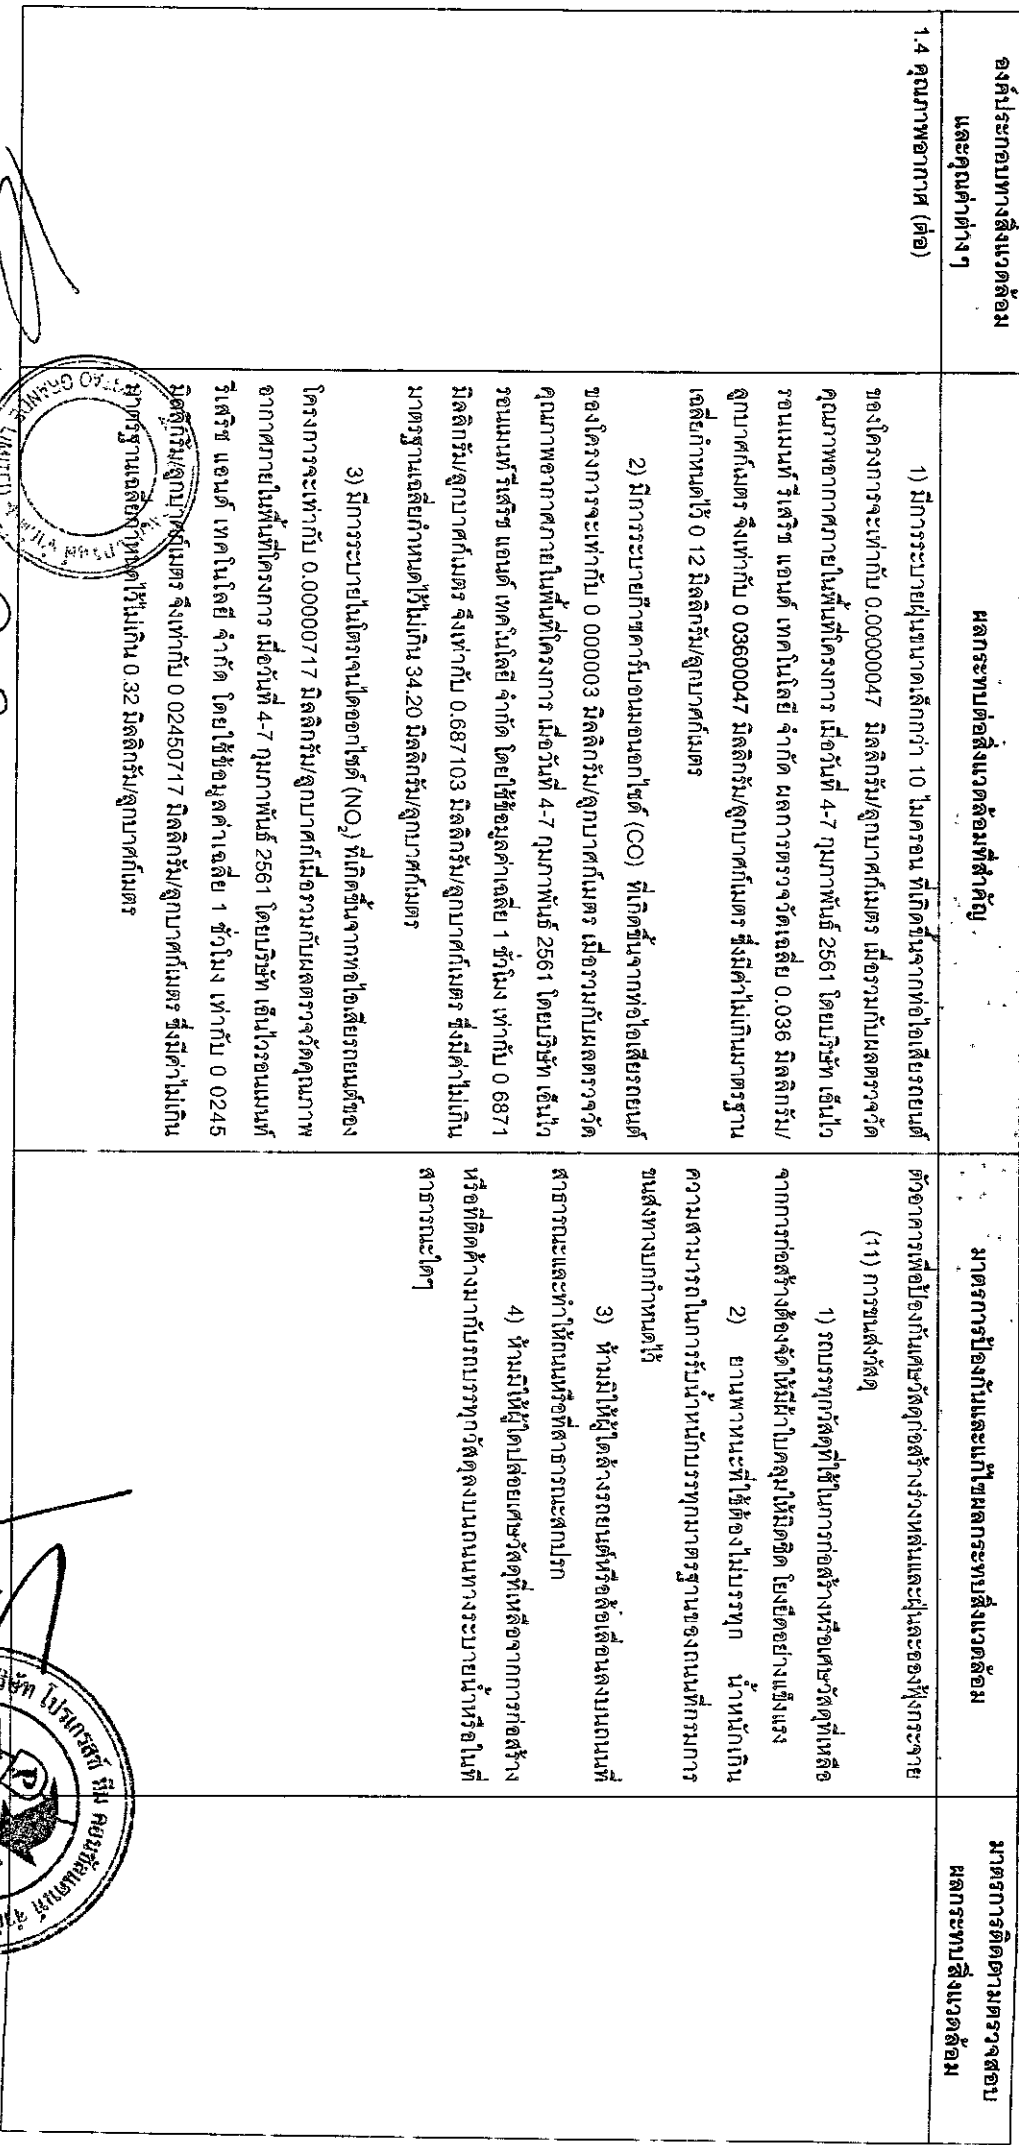 องค์ประกอบทางสิ่งแวดล้อม
และคุณค่าต่างๆ
ผลกระทบต่อสิ่งแวดล้อมที่สำคัญ
มาตรการป้องกันและแก้ไขผลกระทบสิ่งแวดล้อม
มาตรการติดตามตรวจสอบ
ผลกระทบสิ่งแวดล้อม
1.4 คุณภาพอากาศ (ต่อ)
1) มีการระบายฝุ่นขนาดเล็กกว่า 10 ไมครอน ที่เกิดขึ้นจากท่อไอเสียรถยนต์
ของโครงการจะเท่ากับ 0.00000047 มิลลิกรัม/ลูกบาศก์เมตร เมื่อรวมกับผลตรวจวัด
คุณภาพอากาศภายในพื้นที่โครงการ เมื่อวันที่ 4-7 กุมภาพันธ์ 2561 โดยบริษัท เอ็นไว
รอนเมนท์ รีเสริช แอนด์ เทคโนโลยี จำกัด ผลการตรวจวัดเฉลี่ย 0.036 มิลลิกรัม/
ลูกบาศก์เมตร จึงเท่ากับ 0 03600047 มิลลิกรัม/ลูกบาศก์เมตร ซึ่งมีค่าไม่เกินมาตรฐาน
เฉลี่ยกำหนดไว้ 0 12 มิลลิกรัม/ลูกบาศก์เมตร
2) มีการระบายก๊าซคาร์บอนมอนอกไซด์ (CO) ที่เกิดขึ้นจากท่อไอเสียรถยนต์
ของโครงการจะเท่ากับ 0 000003 มิลลิกรัม/ลูกบาศก์เมตร เมื่อรวมกับผลตรวจวัด
คุณภาพอากาศภายในพื้นที่โครงการ เมื่อวันที่ 4-7 กุมภาพันธ์ 2561 โดยบริษัท เอ็นไว
รอนเมนท์ รีเสริช แอนด์ เทคโนโลยี จำกัด โดยใช้ข้อมูลค่าเฉลี่ย 1 ชั่วโมง เท่ากับ 0 6871
มิลลิกรัม/ลูกบาศก์เมตร จึงเท่ากับ 0.687103 มิลลิกรัม/ลูกบาศก์เมตร ซึ่งมีค่าไม่เกิน
มาตรฐานเฉลี่ยกำหนดไว้ไม่เกิน 34.20 มิลลิกรัม/ลูกบาศก์เมตร
3) มีการระบายไนโตรเจนไดออกไซด์ (NO₂) ที่เกิดขึ้นจากท่อไอเสียรถยนต์ของ
โครงการจะเท่ากับ 0.00000717 มิลลิกรัม/ลูกบาศก์เมื่อรวมกับผลตรวจวัดคุณภาพ
อากาศภายในพื้นที่โครงการ เมื่อวันที่ 4-7 กุมภาพันธ์ 2561 โดยบริษัท เอ็นไวรอนเมนท์
รีเสริช แอนด์ เทคโนโลยี จำกัด โดยใช้ข้อมูลค่าเฉลี่ย 1 ชั่วโมง เท่ากับ 0 0245
มิลลิกรัม/ลูกบาศก์เมตร จึงเท่ากับ 0 02450717 มิลลิกรัม/ลูกบาศก์เมตร ซึ่งมีค่าไม่เกิน
มาตรฐานเฉลี่ยกำหนดไว้ไม่เกิน 0.32 มิลลิกรัม/ลูกบาศก์เมตร
ตัวอาคารเพื่อป้องกันเศษวัสดุก่อสร้างร่วงหล่นและฝุ่นละอองฟุ้งกระจาย
(11) การขนส่งวัสดุ
1) รถบรรทุกวัสดุที่ใช้ในการก่อสร้างหรือเศษวัสดุที่เหลือ
จากการก่อสร้างต้องจัดให้มีผ้าใบคลุมให้มิดชิด โยงยึดอย่างแข็งแรง
2) ยานพาหนะที่ใช้ต้องไม่บรรทุก น้ำหนักเกิน
ความสามารถในการรับน้ำหนักบรรทุกมาตรฐานของถนนที่กรมการ
ขนส่งทางบกกำหนดไว้
3) ห้ามมิให้ผู้ใดล้างรถยนต์หรือล้อเลื่อนลงบนถนนที่
สาธารณะและทำให้ถนนหรือที่สาธารณะสกปรก
4) ห้ามมิให้ผู้ใดปล่อยเศษวัสดุที่เหลือจากการก่อสร้าง
หรือที่ติดค้างมากับรถบรรทุกวัสดุลงบนถนนทางระบายน้ำหรือในที่
สาธารณะใดๆ
GRANDE
LIMITED
โปรเกรสซ์ ทีม คอนซัลแตนท์